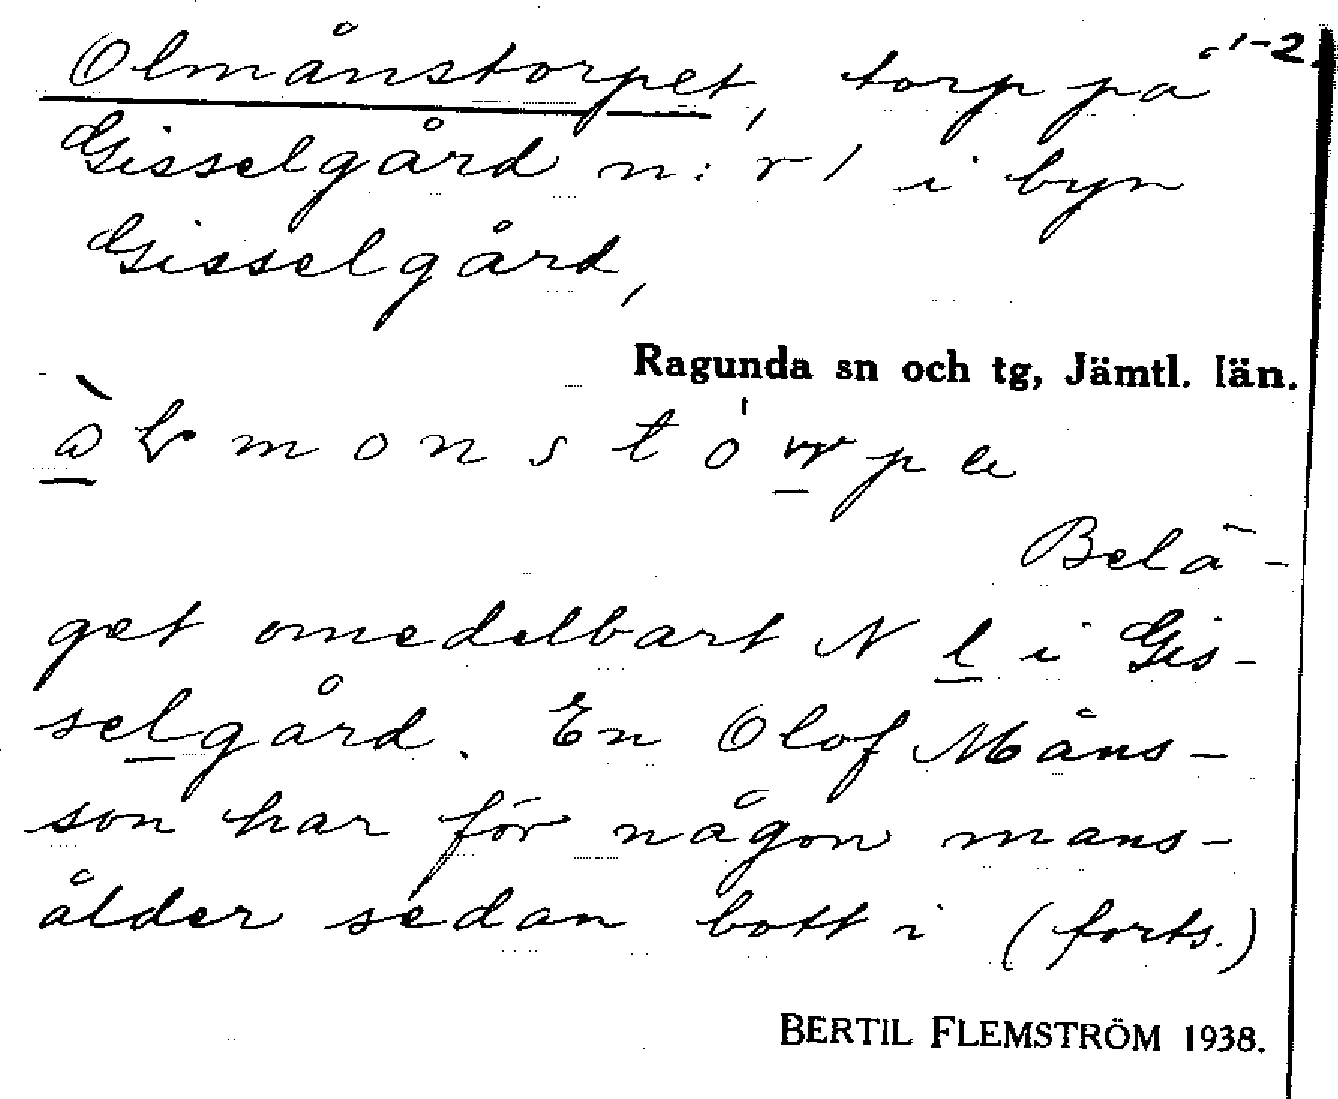 1-2.
Olmånstorpet, torp på
Gisselgård n:r 1 i byn
Gisselgård,
Ragunda sn och tg, Jämtl. län.
Belä-
get omedelbart N l i Gis-
selgård. En Olof Måns-
son har för någon mans-
ålder sedan bott i (forts.)
BERTIL FLEMSTRÖM 1938.